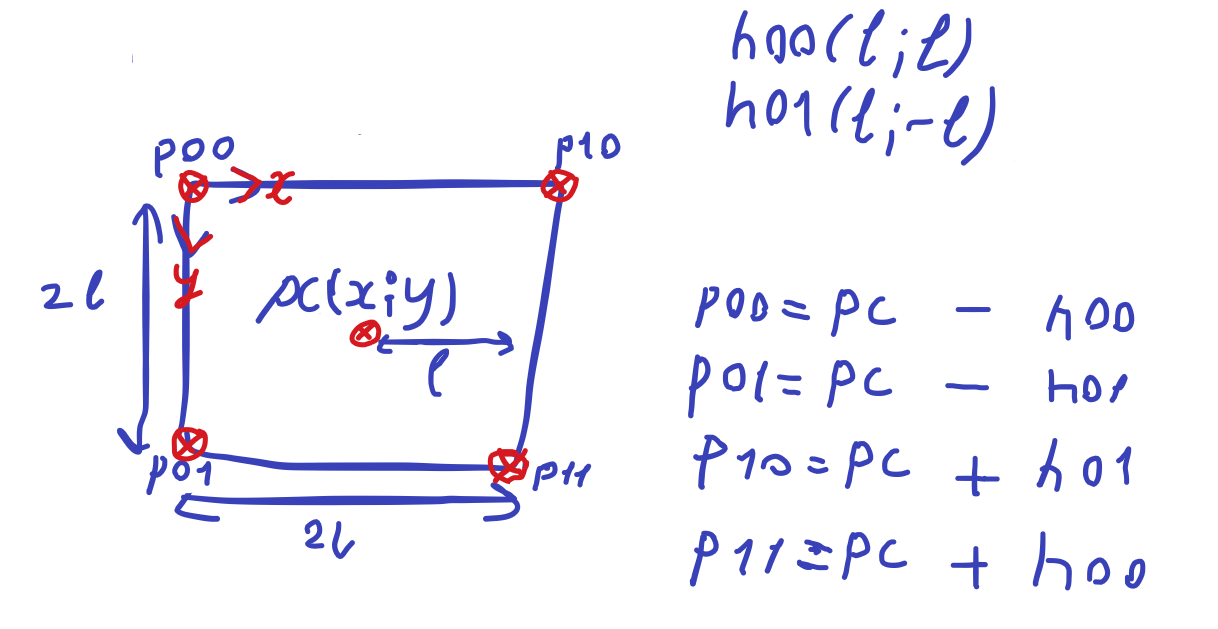 h00(l;l)
h01(l;-l)
p00
p10
x
y
2l
pc(x;y)
l
p01
p11
2l
p00 = pc - h00
p01 = pc - h01
p10 = pc + h01
p11 = pc + h00